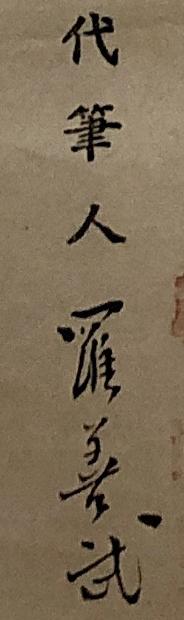 代筆人羅善武